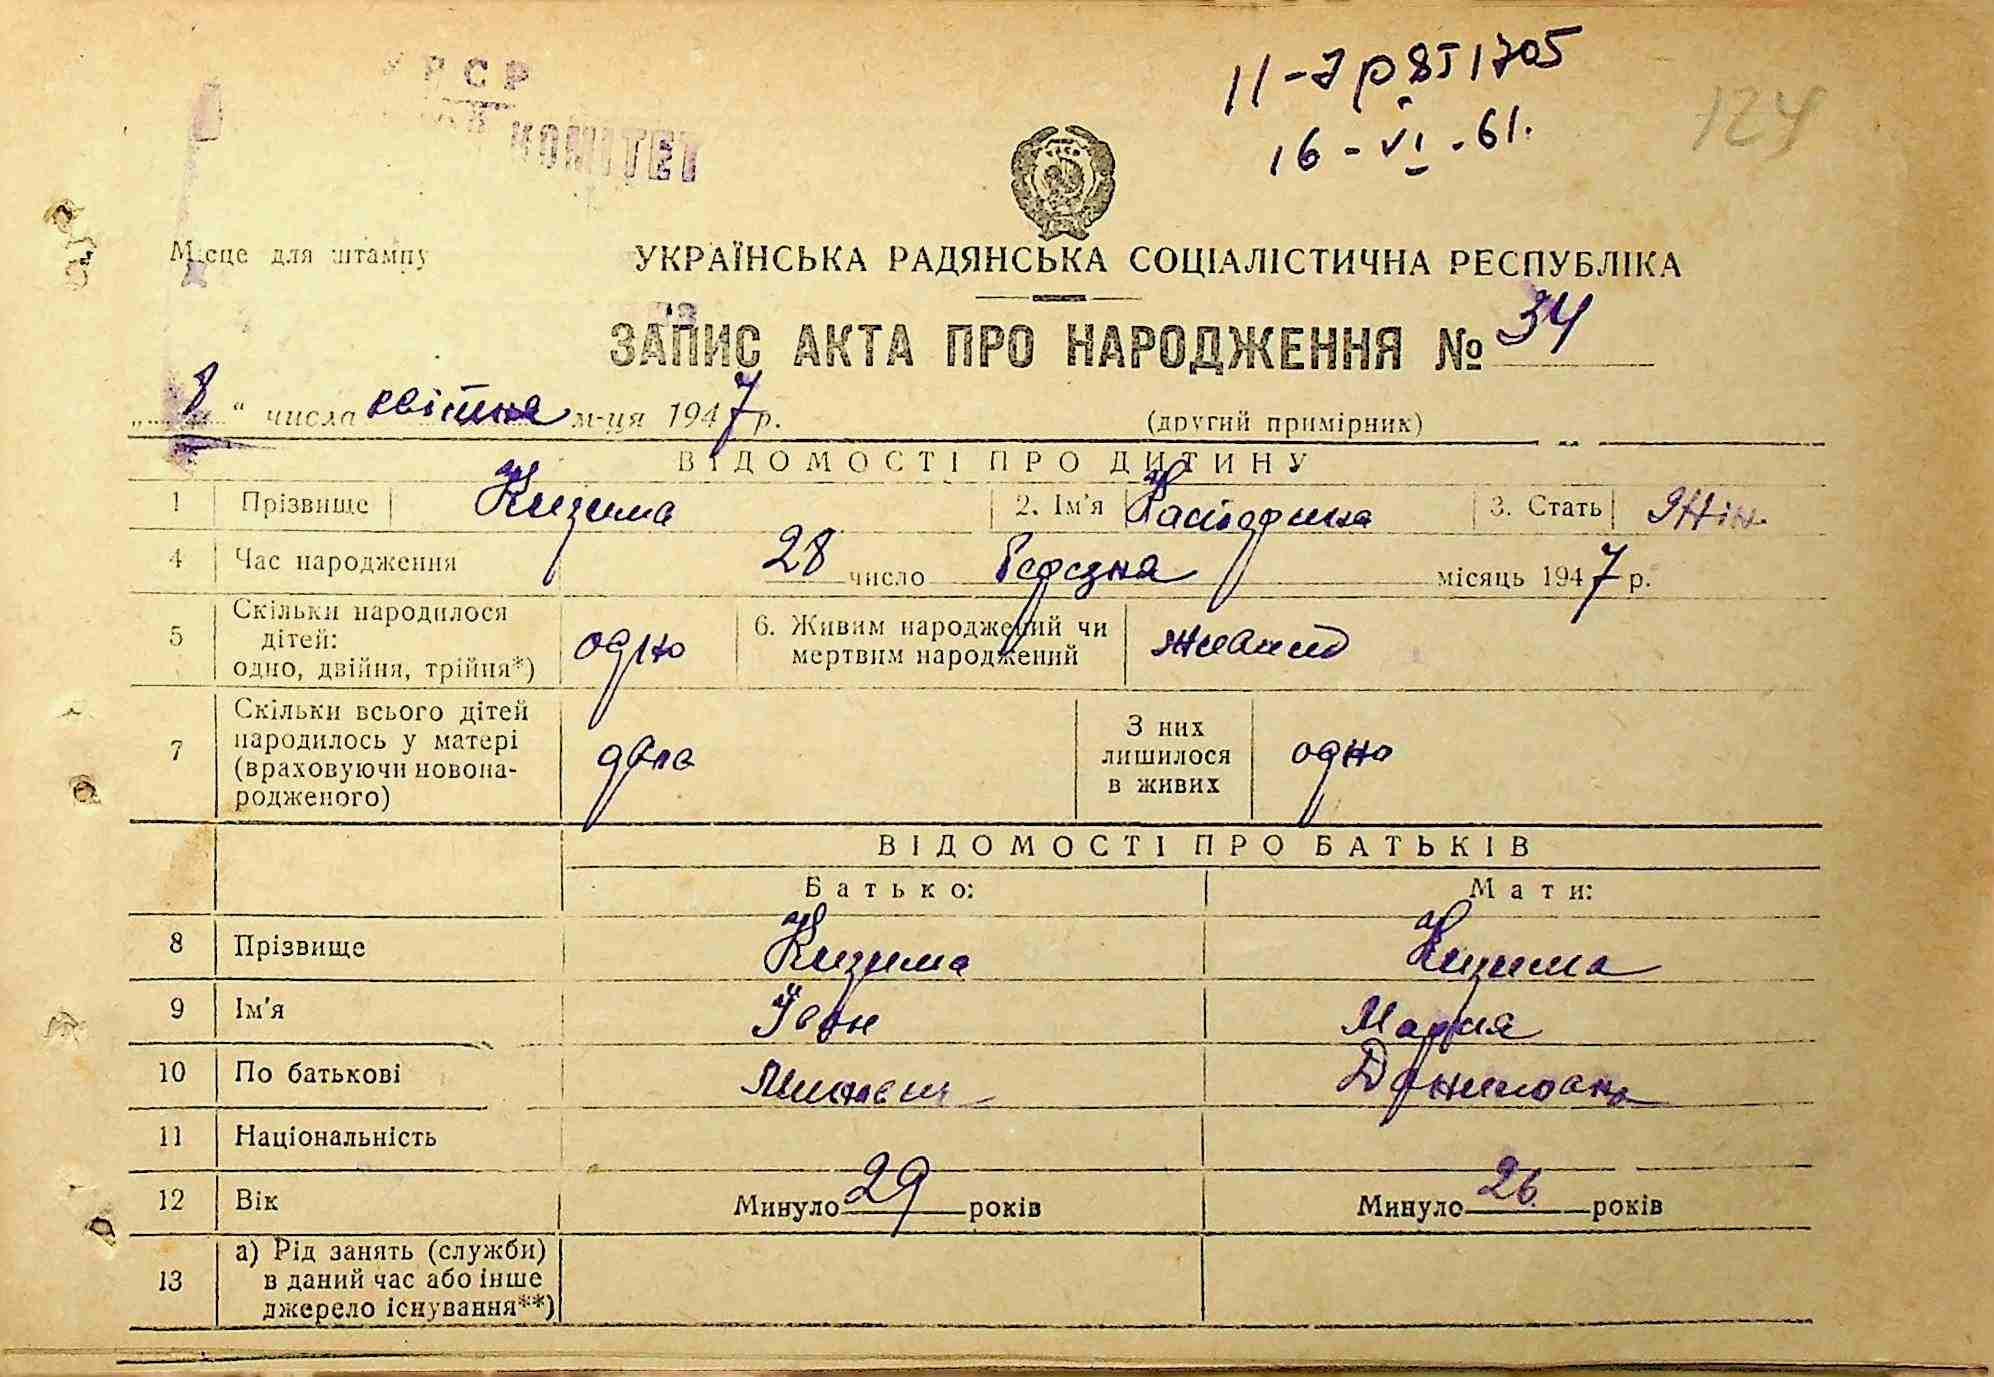 УРСР
КОМІТЕТ
16-VI-61.
124
Місце для штампу
УКРАЇНСЬКА РАДЯНСЬКА СОЦІАЛІСТИЧНА РЕСПУБЛІКА
ЗАПИС АКТА ПРО НАРОДЖЕННЯ № 34
„8“ числа квітня м-ця 1947 р.
(другий примірник)
ВІДОМОСТІ ПРО ДИТИНУ
1 Прізвище Кизима 2. Ім'я Катерина 3. Стать Жін.
4 Час народження 28 число березня місяць 1947 р.
5 Скільки народилося дітей: одно, двійня, трійня*) одно 6. Живим народжений чи мертвим народжений живим
7 Скільки всього дітей народилось у матері (враховуючи новонародженого) двоє З них лишилося в живих одно
ВІДОМОСТІ ПРО БАТЬКІВ
Батько: Мати:
8 Прізвище Кизима Кизима
9 Ім'я Іван Мария
10 По батькові Даниловна
11 Національність
12 Вік Минуло 29 років Минуло 26 років
13 а) Рід занять (служби) в даний час або інше джерело існування**)